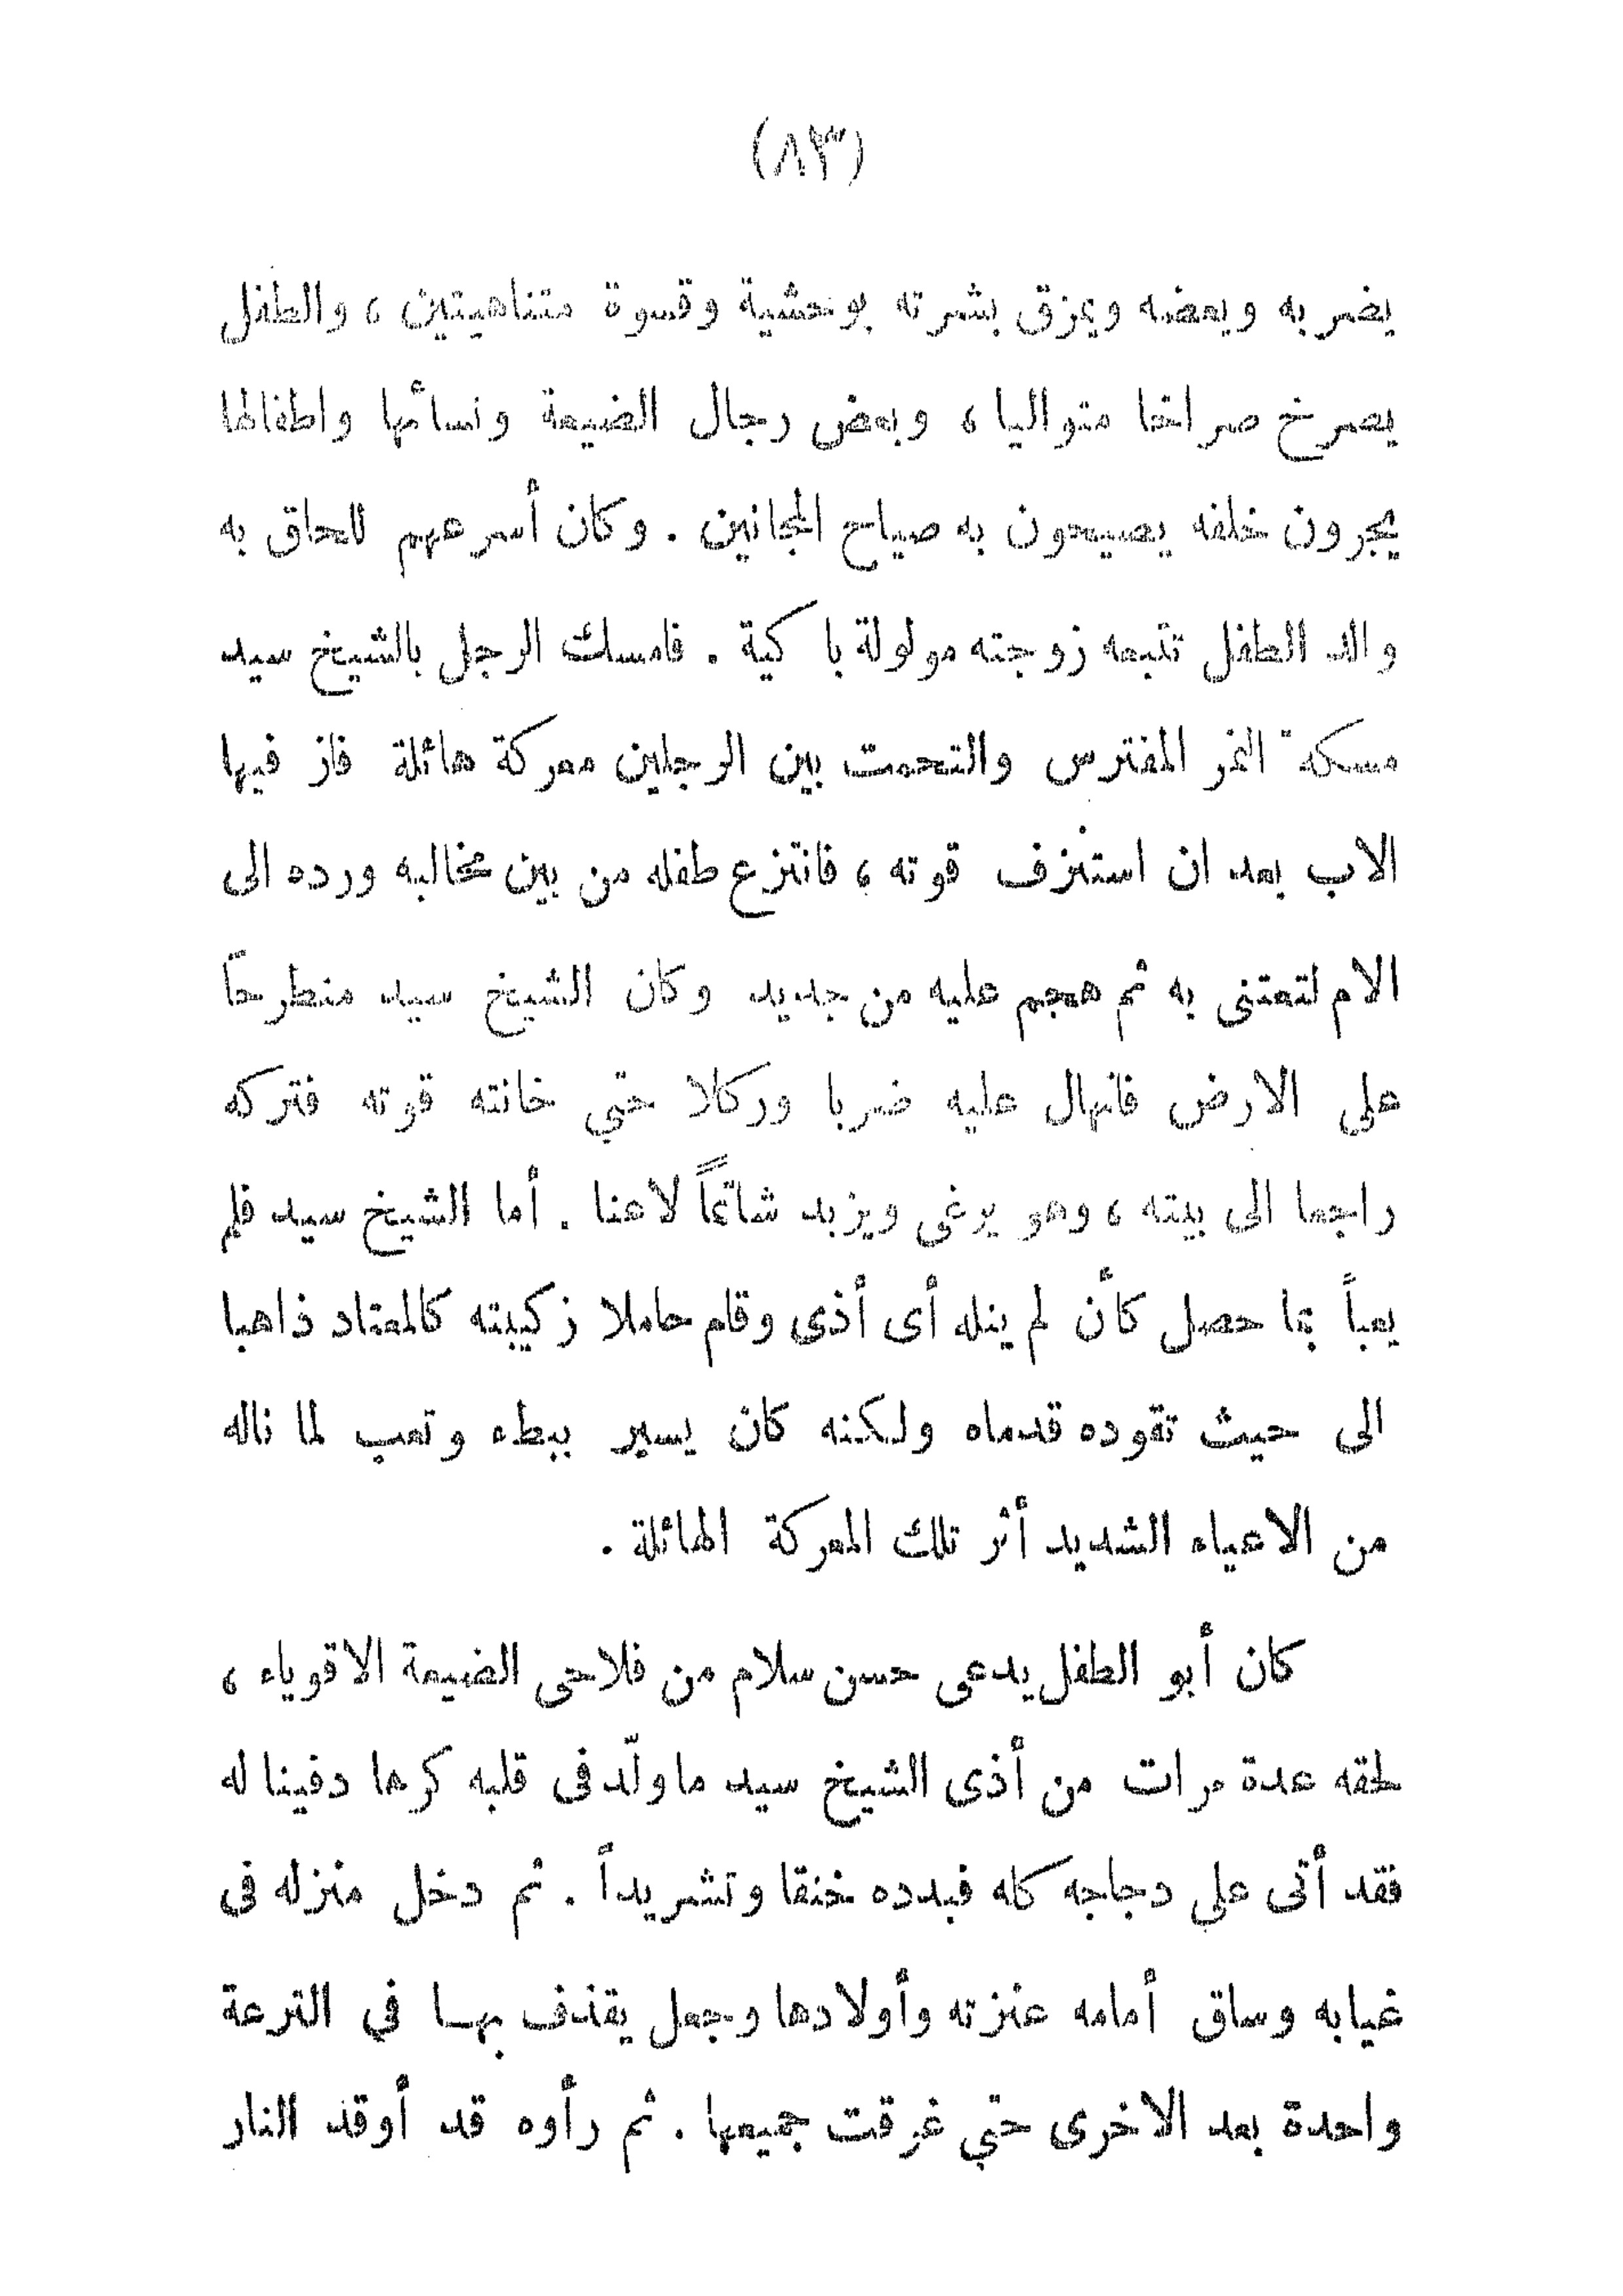 (٨٣)
يضربه ويعضه ويمزق بشرته بوحشية وقسوة متناهيتين ، والطفل
يصرخ صراخا متواليا ، وبعض رجال الضيعة ونسائها واطفالها
يجرون خلفه يصيحون به صياح المجانين . وكان أسرعهم للحاق به
والد الطفل تتبعه زوجته مولولة باكية . فامسك الرجل بالشيخ سيد
مسكة النمر المفترس والتحمت بين الرجلين معركة هائلة فاز فيها
الاب بعد ان استنزف قوته ، فانتزع طفله من بين مخالبه ورده الى
الام لتعتنى به ثم هجم عليه من جديد وكان الشيخ سيد منطرحاً
على الارض فانهال عليه ضربا وركلا حتي خانته قوته فتركه
راجعا الى بيته ، وهو يرغى ويزبد شاتماً لاعنا . أما الشيخ سيد فلم
يعبأ بما حصل كأن لم ينله أى أذى وقام حاملا زكيبته كالمعتاد ذاهبا
الى حيث تقوده قدماه ولكنه كان يسير ببطء وتعب لما ناله
من الاعياء الشديد أثر تلك المعركة الهائلة .
كان أبو الطفل يدعى حسن سلام من فلاحى الضيعة الاقوياء ،
لحقه عدة مرات من أذى الشيخ سيد ما ولّد فى قلبه كرها دفينا له
فقد أتى على دجاجه كله فبدده خنقا وتشريداً . ثم دخل منزله فى
غيابه وساق أمامه عنزته وأولادها وجعل يقذف بها في الترعة
واحدة بعد الاخرى حتي غرقت جميعها . ثم رأوه قد أوقد النار